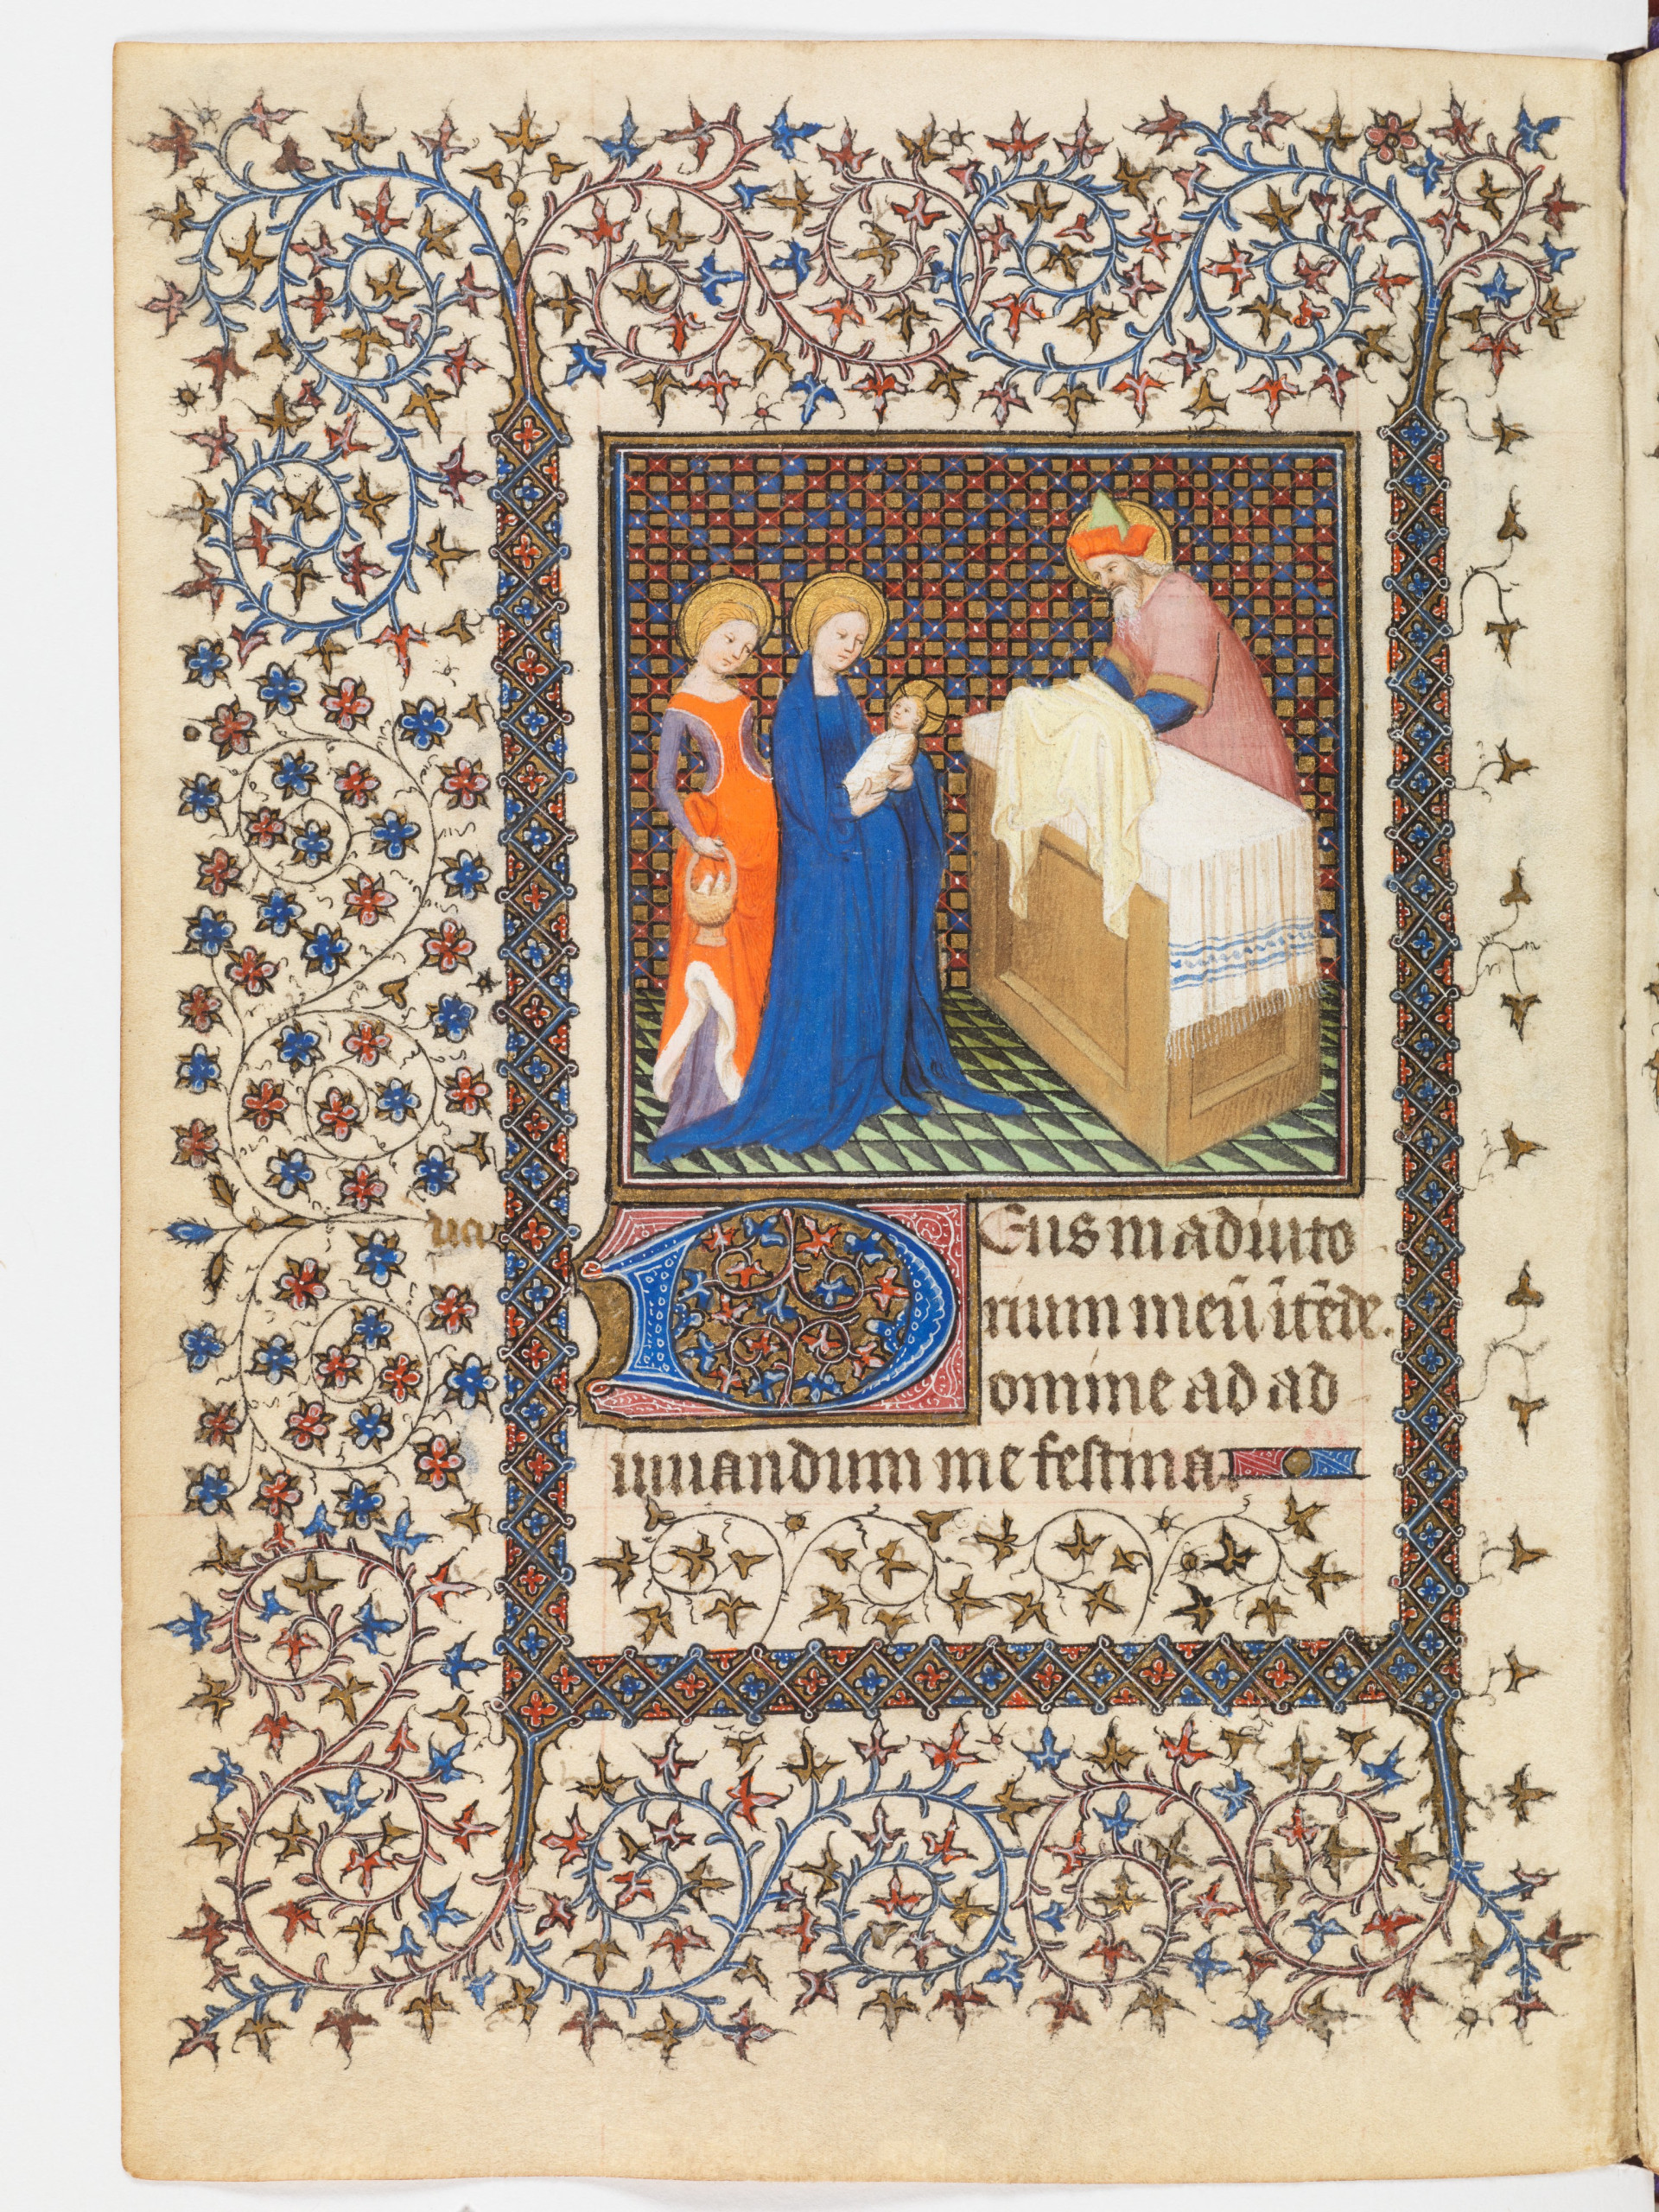 Deus in adiuto
rium meū ītēde.
Domine ad ad
iuuandum me festina